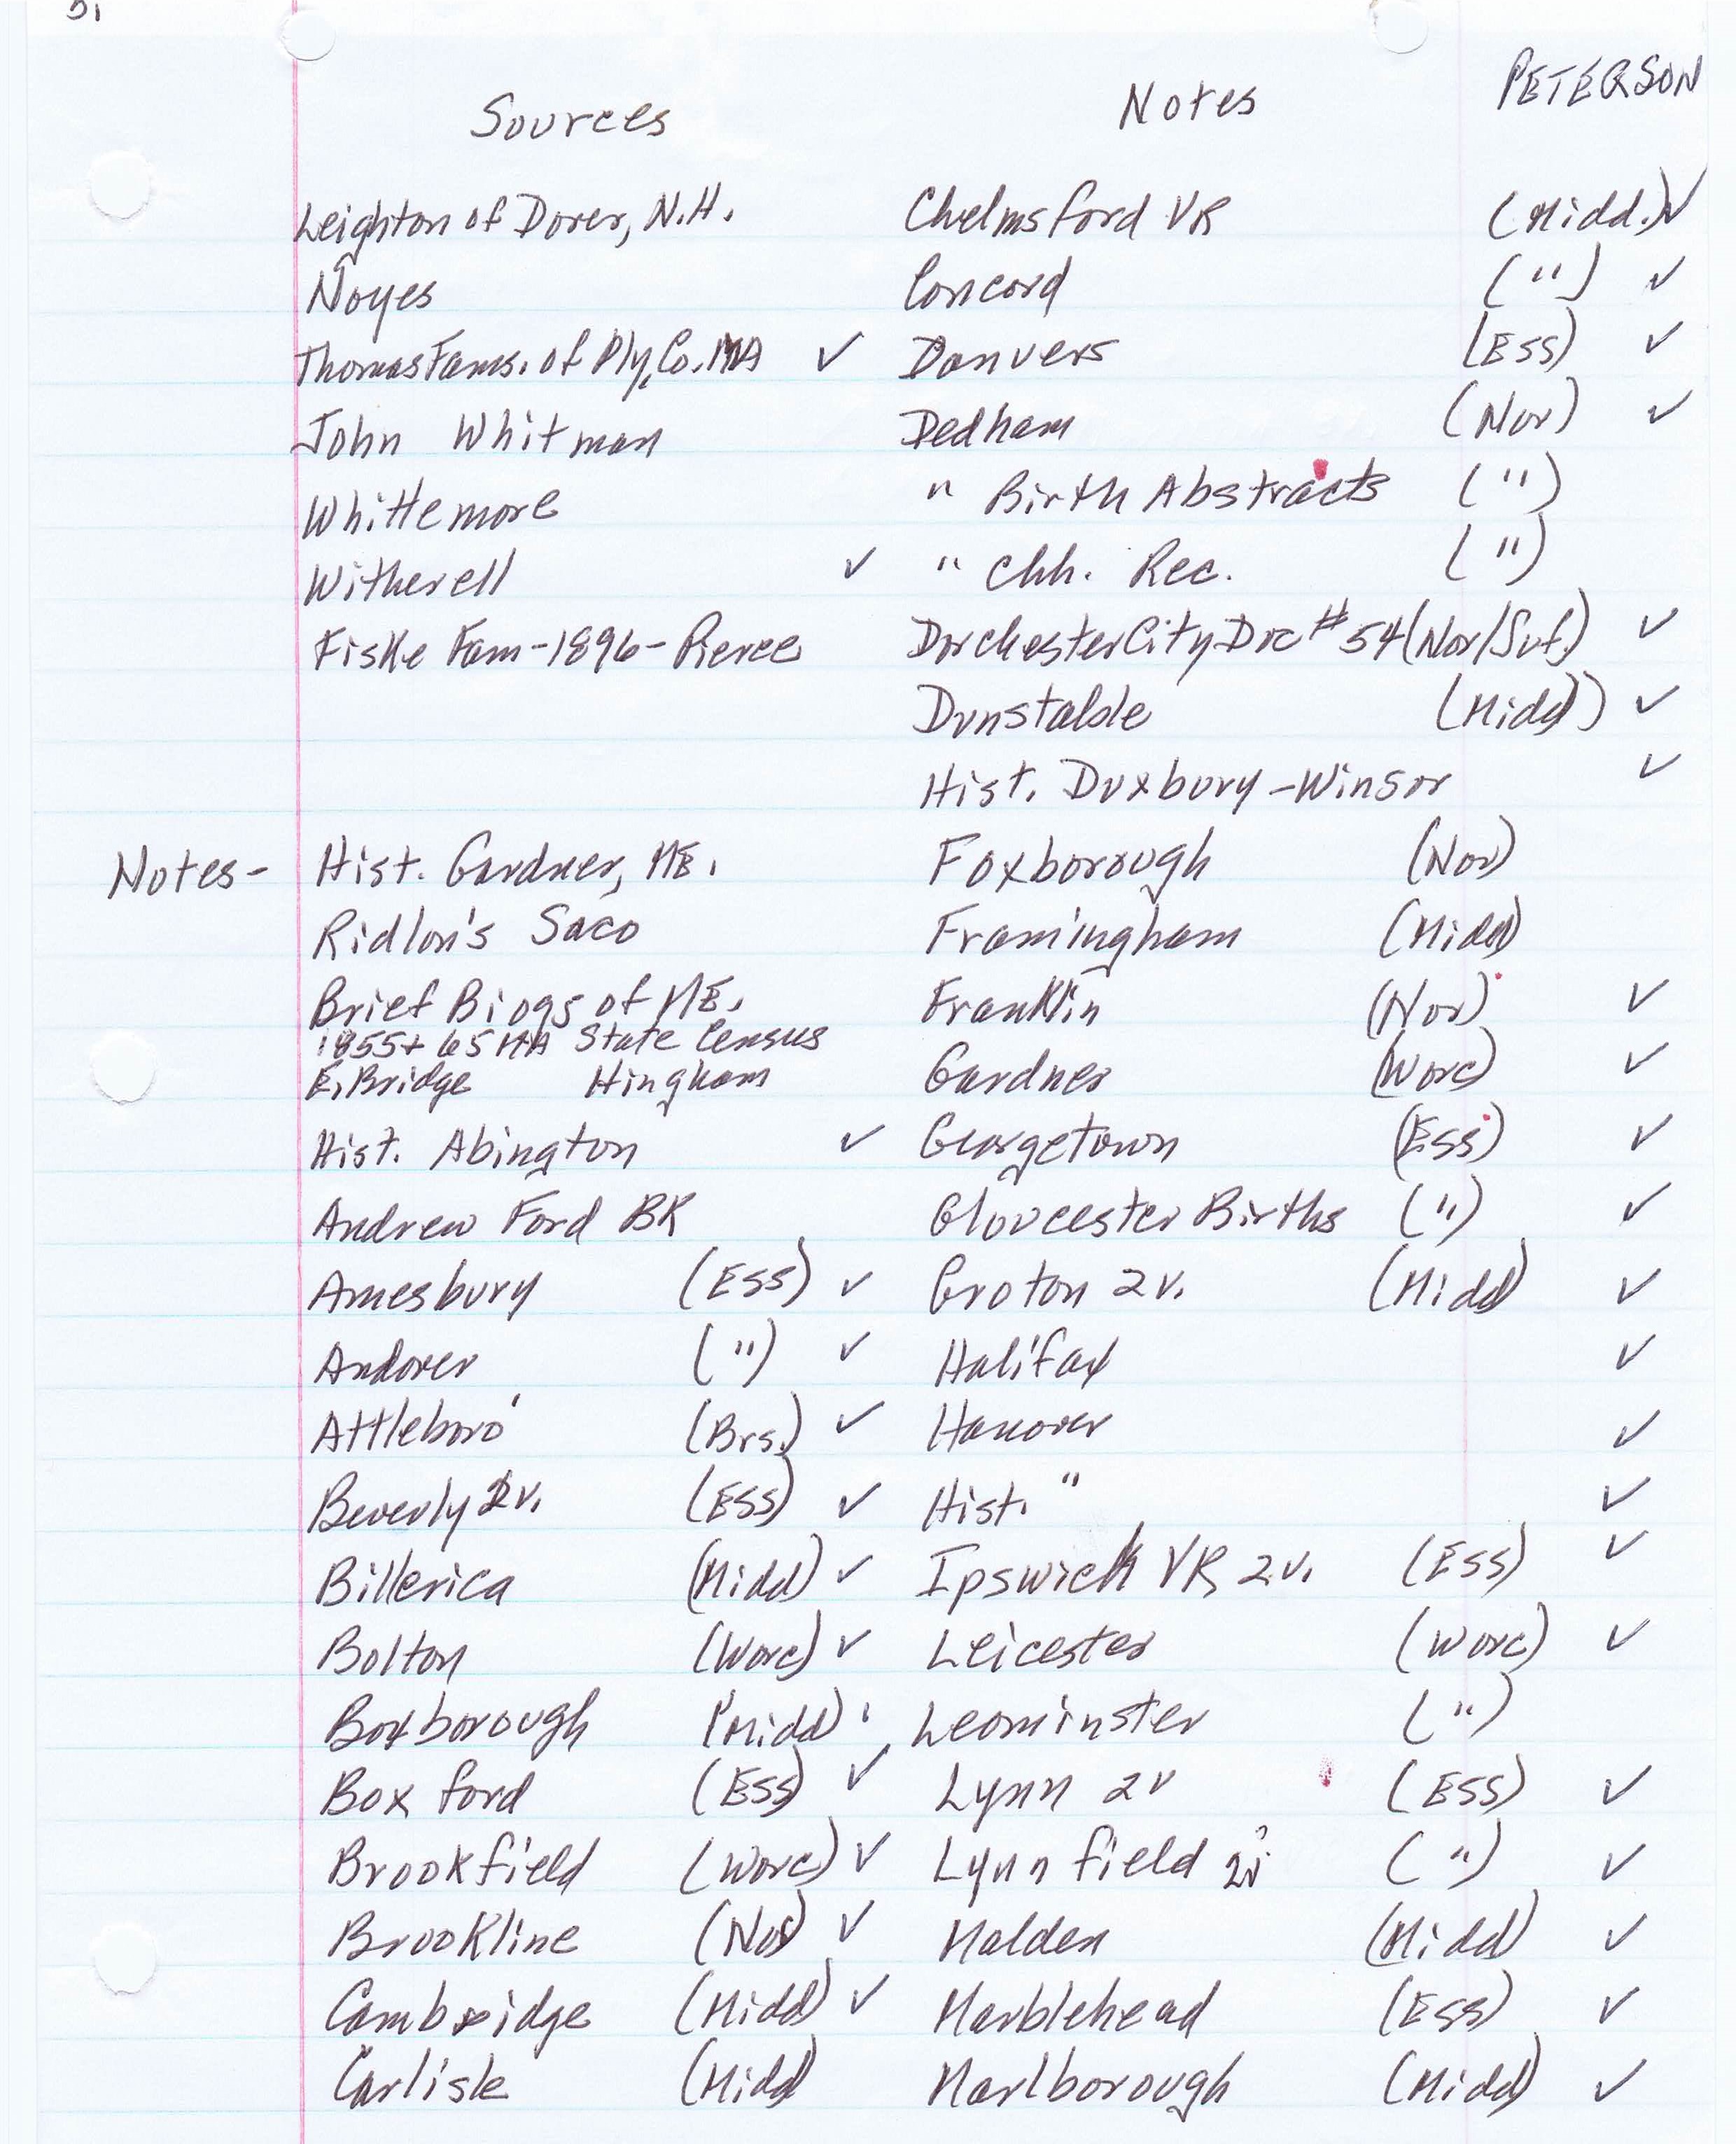 Sources Notes PETERSON
Leighton of Dover, N.H. Chelmsford VR (Midd.) ✓
Noyes Concord (") ✓
Thomas Fams. of Ply. Co. MA ✓ Danvers (Ess) ✓
John Whitman Dedham (Nor) ✓
Whittemore " Birth Abstracts (")
Witherell ✓ " Chh. Rec. (")
Fiske Fam-1896-Pierce Dorchester City Doc # 54 (Nor/Suf.) ✓
Dunstable (Midd) ✓
Hist. Duxbury-Winsor ✓
Notes- Hist. Gardner, ME. Foxborough (Nor)
Ridlon's Saco Framingham (Midd)
Brief Biogs of ME. Franklin (Nor) ✓
1855+ 65 MA State Census
E. Bridge Hingham Gardner (Worc) ✓
Hist. Abington ✓ Georgetown (Ess) ✓
Andrew Ford BK Gloucester Births (") ✓
Amesbury (Ess) ✓ Groton 2v. (Midd) ✓
Andover (") ✓ Halifax ✓
Attleboro' (Brs.) ✓ Hanover ✓
Beverly 2v. (Ess) ✓ Hist. " ✓
Billerica (Midd) ✓ Ipswich VR 2v. (Ess) ✓
Bolton (Worc) ✓ Leicester (Worc) ✓
Boxborough (Midd) Leominster (")
Boxford (Ess) ✓ Lynn 2v (Ess) ✓
Brookfield (Worc) ✓ Lynnfield (") ✓
Brookline (Nor) ✓ Malden (Midd) ✓
Cambridge (Midd) ✓ Marblehead (Ess) ✓
Carlisle (Midd) Marlborough (Midd) ✓